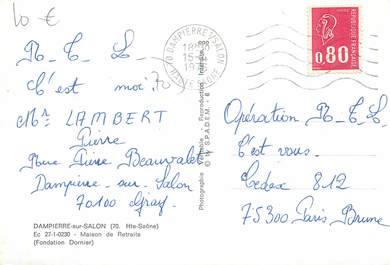 10 €
R.T.L
C'est moi
Mr LAMBERT
Pierre
Rue Pierre Beauvalet
Dampierre-sur-Salon
70100 Gray.
DAMPIERRE-sur-SALON (70. Hte-Saône)
Ec 27-I-0230 - Maison de Retraite
(Fondation Dornier)
70 DAMPIERRE S/SALON
HAUTE SAONE
Photographie Véritable - Reproduction Interdite
© by S.P.A.D.E.M.
REPUBLIQUE FRANÇAISE
0,80
Opération R.T.L
C'est vous.
Cedex 812
75300 Paris Brune